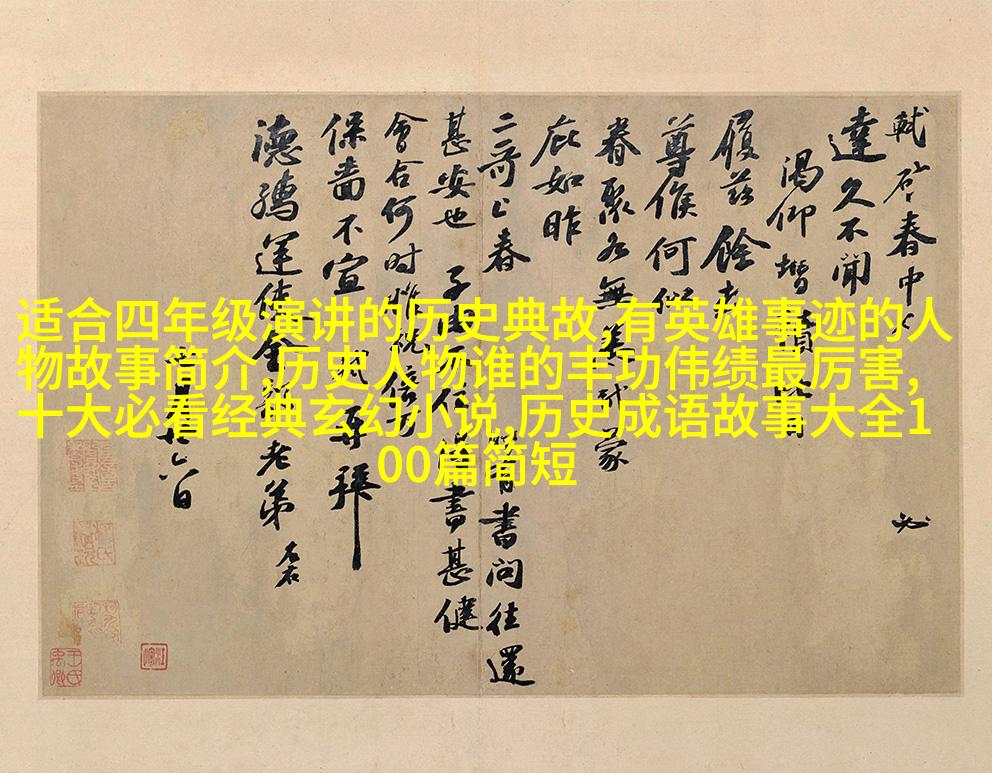 适合四年级演讲的历史典故,有英雄事迹的人
物故事简介,历史人物谁的丰功伟绩最厉害,
十大必看经典玄幻小说,历史成语故事大全1
00篇简短
軾啓春中 必
達久不聞
渴仰增積
履茲餘
尊候何似
眷聚各無恙 蒙
庇如昨
二哥上春 書問往還
甚安也子由 書甚健
會合何時惟祝倍
保嗇不宣軾再拜
德孺運使金部老弟
廿八日